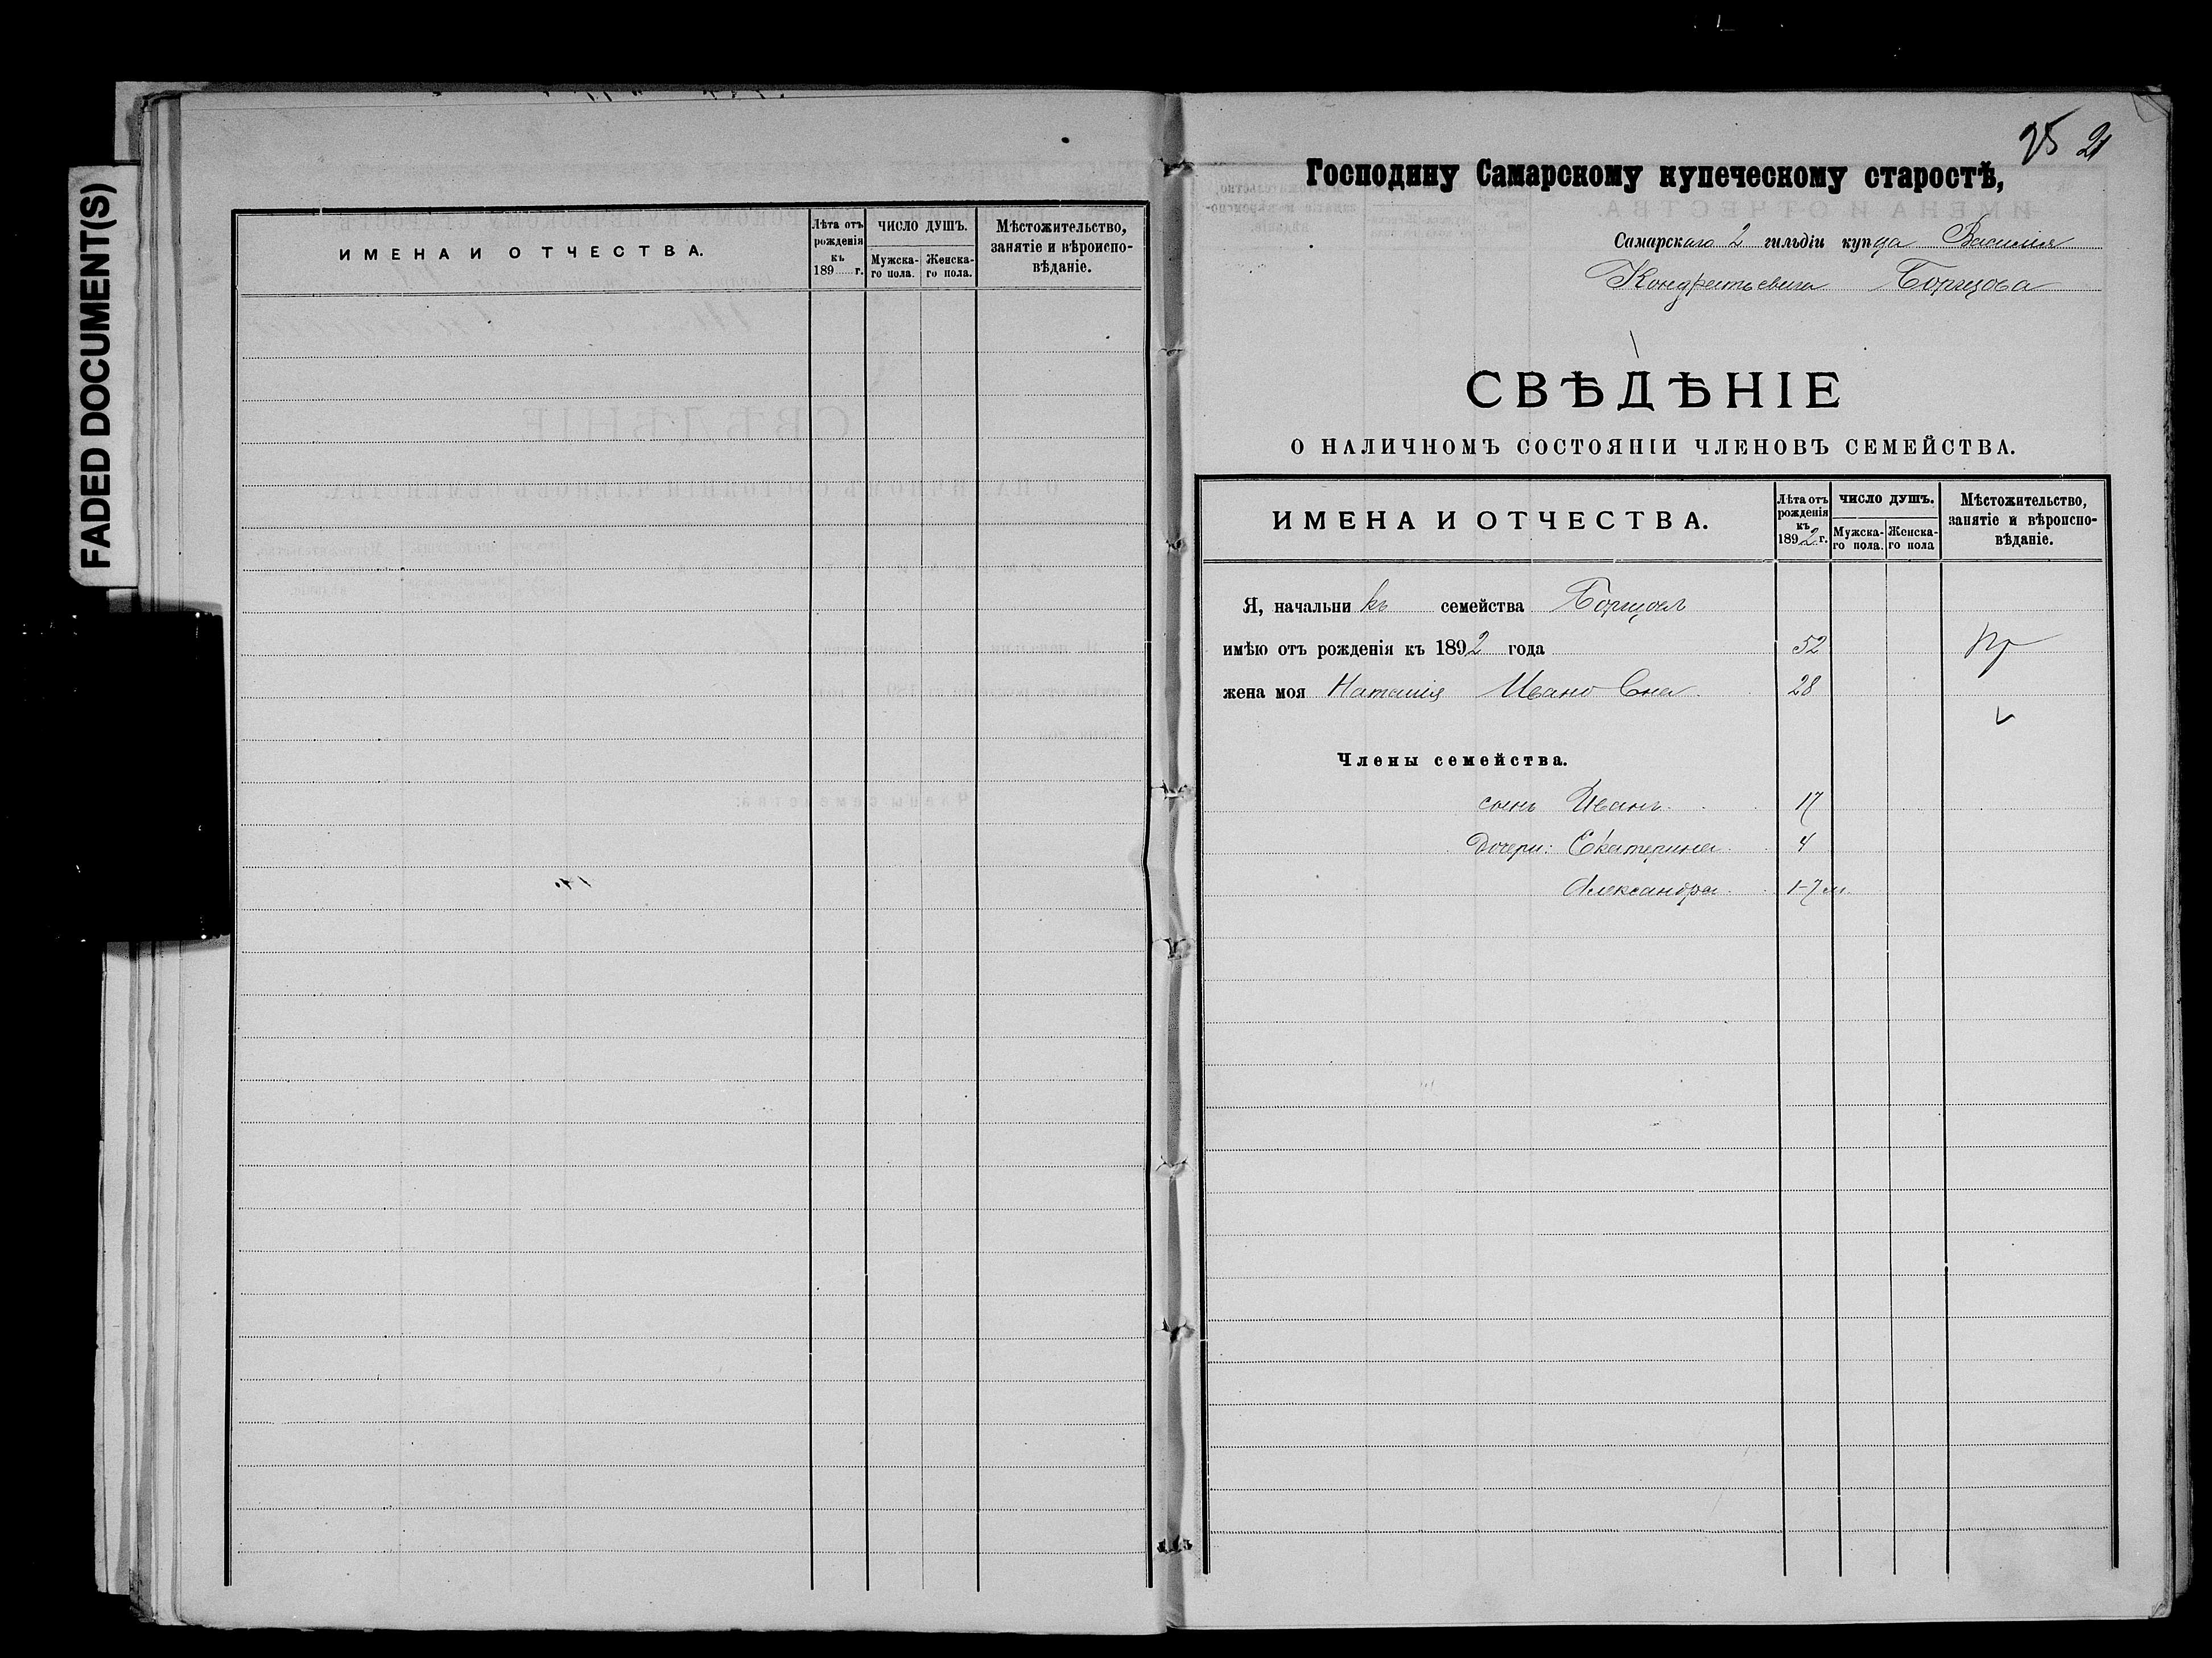 FADED DOCUMENT(S)
ИМЕНА И ОТЧЕСТВА.
Лѣта отъ рожденія къ 189 г.
ЧИСЛО ДУШЪ.
Мужска-го пола.
Женска-го пола.
Мѣстожительство, занятіе и вѣроиспо-вѣданіе.
21
Господину Самарскому купеческому старостѣ,
Самарскаго 2 гильдіи купца Василія
Кондратьевича Борщова
СВѢДѢНІЕ
О НАЛИЧНОМЪ СОСТОЯНІИ ЧЛЕНОВЪ СЕМЕЙСТВА.
ИМЕНА И ОТЧЕСТВА.
Лѣта отъ рожденія къ 1892 г.
ЧИСЛО ДУШЪ.
Мужска-го пола.
Женска-го пола
Мѣстожительство, занятіе и вѣроиспо-вѣданіе.
Я, начальникъ семейства Борщовъ
имѣю отъ рожденія къ 1892 года 52
жена моя Наталія Ивановна 28
Члены семейства.
сынъ Иванъ 17
Дочери: Екатерина 4
Александра 1-7 м.